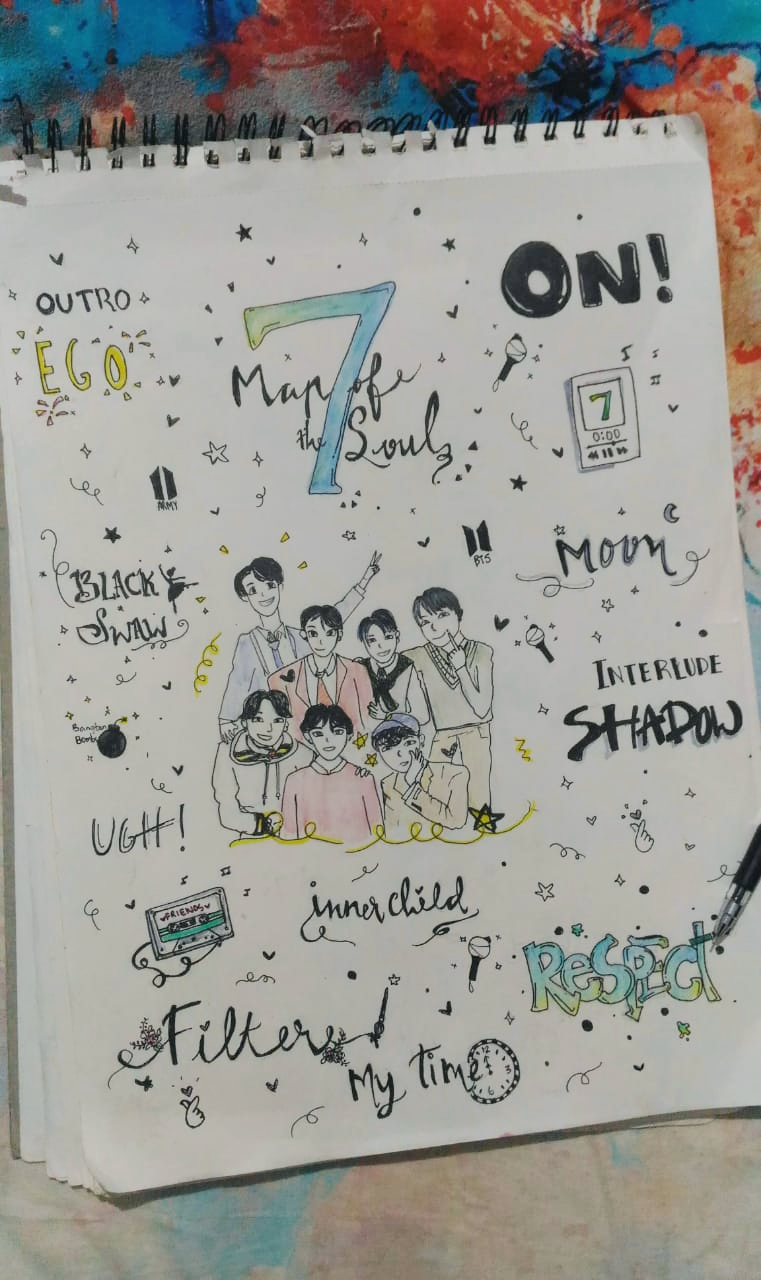 OUTRO
EGO
ON!
7
Map of
the Soul
7
0:00
ARMY
BTS
Moon
BLACK
SWAN
INTERLUDE
SHADOW
Bangtan
Bomb
UGH!
FRIENDS
inner child
RESPECT
Filter
My Time
12
3
6
9